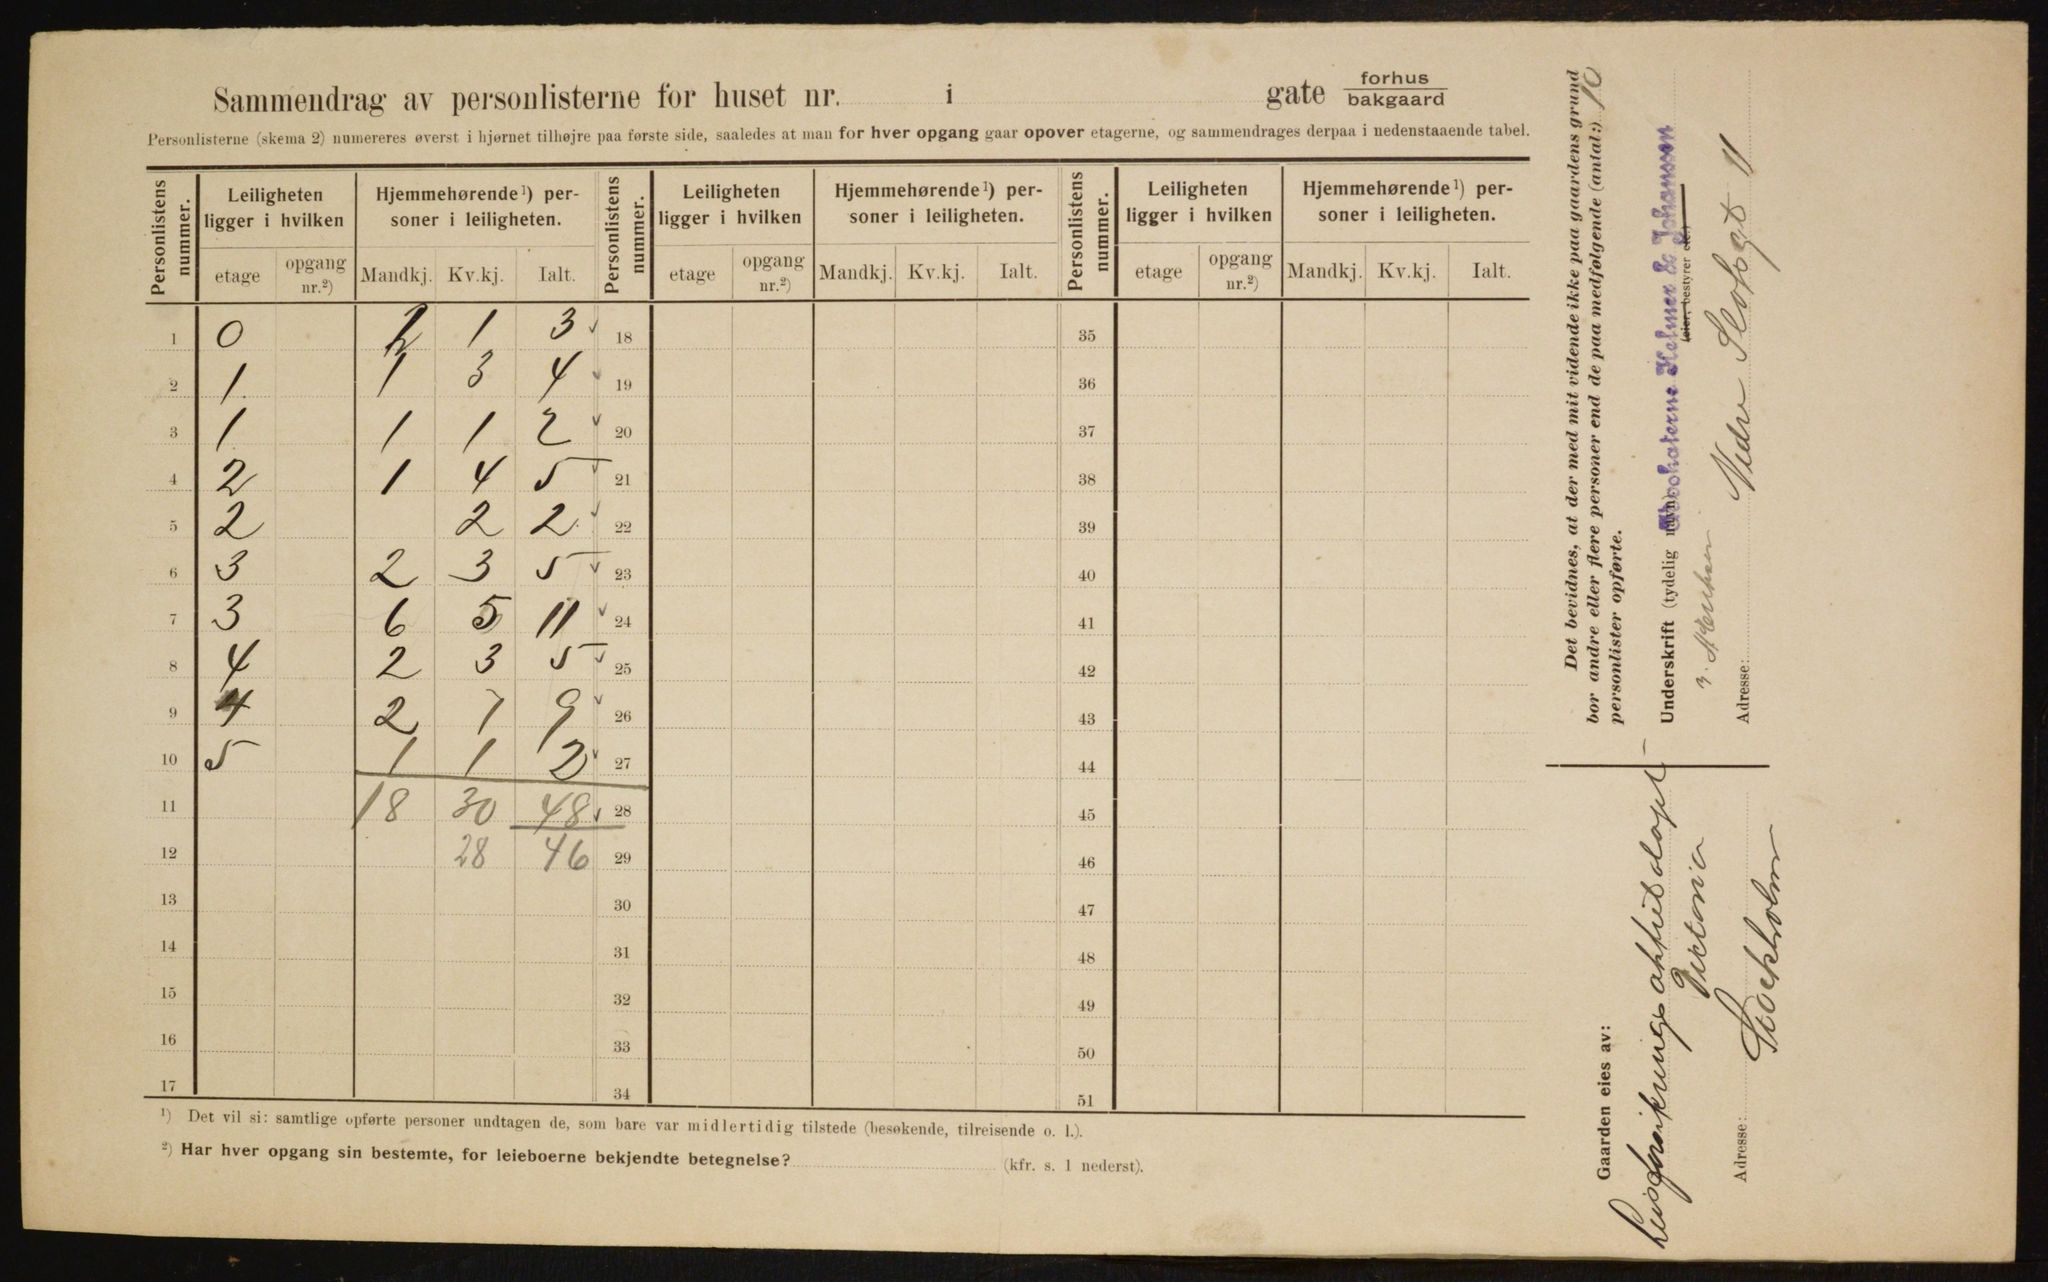 Sammendrag av personlisterne for huset nr. i gate forhus bakgaard
Personlisterne (skema 2) numereres øverst i hjørnet tilhøjre paa første side, saaledes at man for hver opgang gaar opover etagerne, og sammendrages derpaa i nedenstaaende tabel.
Personlistens nummer. Leiligheten ligger i hvilken Hjemmehørende¹) personer i leiligheten. Personlistens nummer. Leiligheten ligger i hvilken Hjemmehørende¹) personer i leiligheten. Personlistens nummer. Leiligheten ligger i hvilken Hjemmehørende¹) personer i leiligheten.
etage opgang nr.²) Mandkj. Kv.kj. Ialt. etage opgang nr.²) Mandkj. Kv.kj. Ialt. etage opgang nr.²) Mandkj. Kv.kj. Ialt.
1 0 2 1 3 18 35
2 1 1 3 4 19 36
3 1 1 1 2 20 37
4 2 1 4 5 21 38
5 2 2 2 22 39
6 3 2 3 5 23 40
7 3 6 5 11 24 41
8 4 2 3 5 25 42
9 4 2 7 9 26 43
10 5 1 1 2 27 44
11 18 30 48 28 45
12 28 46 29 46
13 30 47
14 31 48
15 32 49
16 33 50
17 34 51
¹) Det vil si: samtlige opførte personer undtagen de, som bare var midlertidig tilstede (besøkende, tilreisende o. l.).
²) Har hver opgang sin bestemte, for leieboerne bekjendte betegnelse? (kfr. s. 1 nederst).
Det bevidnes, at der med mit vidende ikke paa gaardens grund
bor andre eller flere personer end de paa medfølgende (antal:) 10
personlister opførte.
Underskrift (tydelig navn): Advokaterne Helmer & Johanssen
(eier, bestyrer etc.)
Adresse: Nedre Slotsgt 11
Gaarden eies av:
Livsforsikringsaktiebolaget
Victoria
Adresse: Stockholm